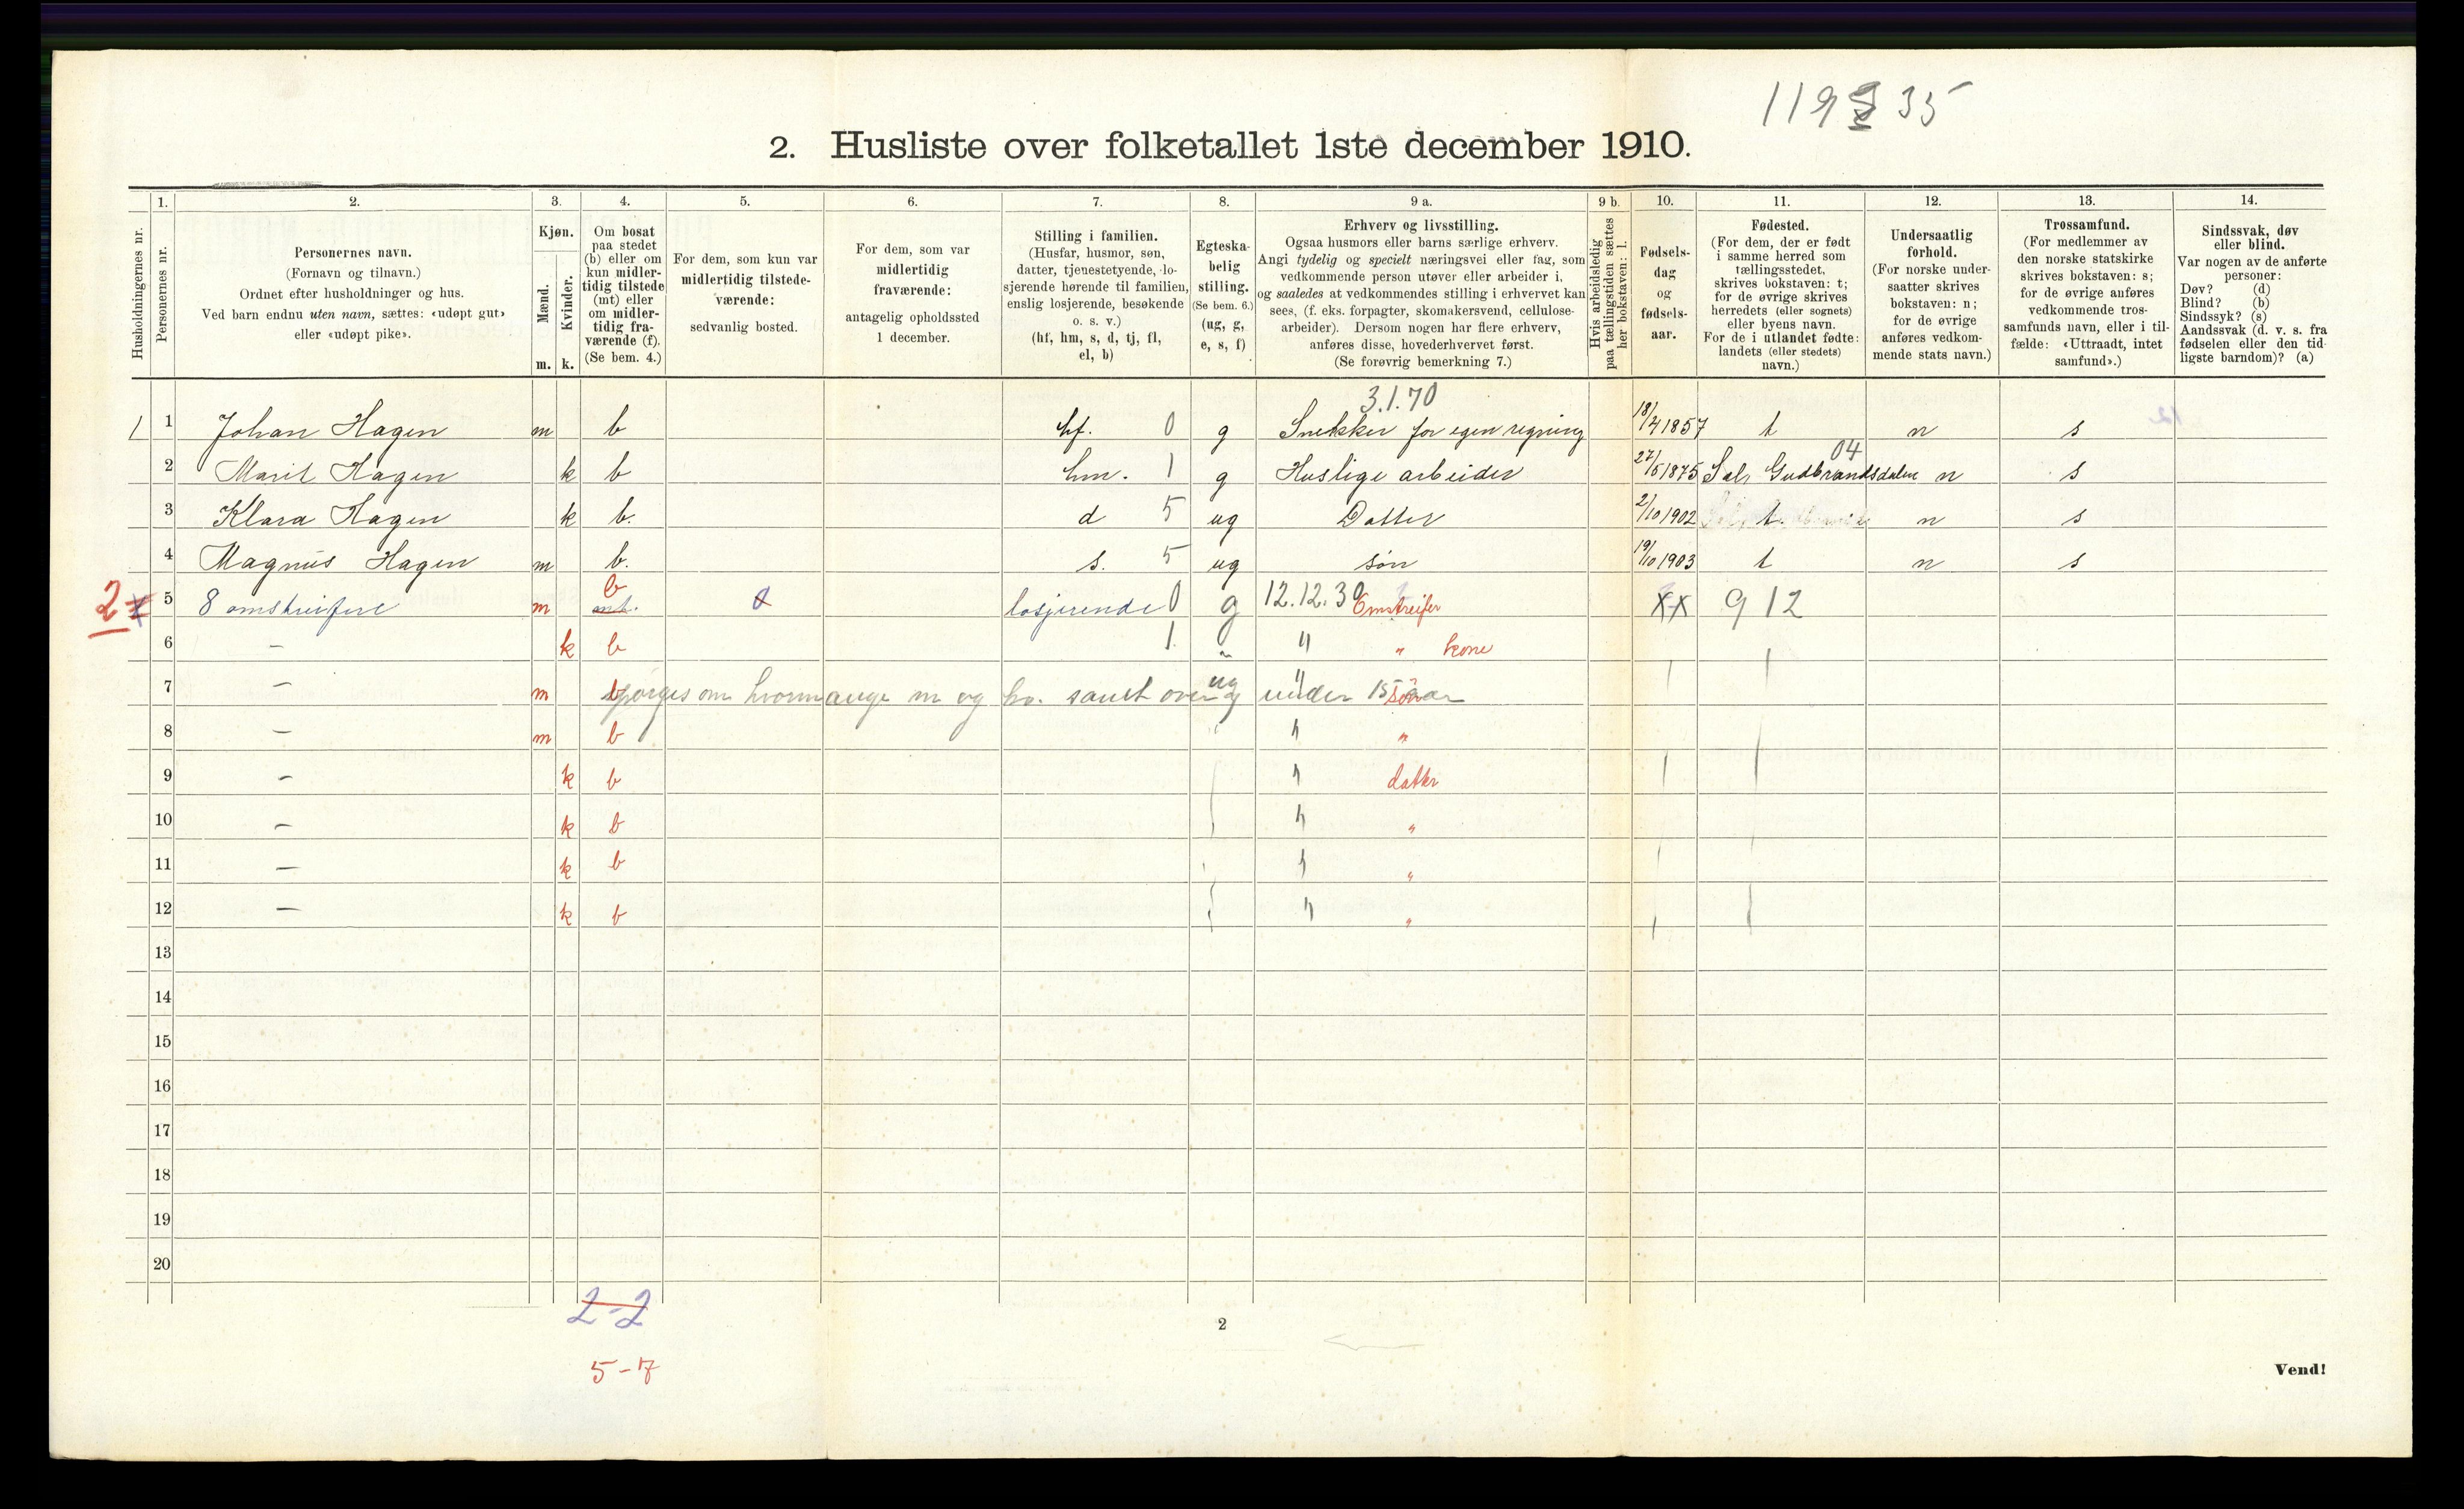 119 35
2. Husliste over folketallet 1ste december 1910.
Husholdningernes nr.
1.
Personernes nr.
2.
Personernes navn.
(Fornavn og tilnavn.)
Ordnet efter husholdninger og hus.
Ved barn endnu uten navn, sættes: «udøpt gut»
eller «udøpt pike».
3.
Kjøn.
Mænd.
Kvinder.
m. k.
4.
Om bosat
paa stedet
(b) eller om
kun midler-
tidig tilstede
(mt) eller
om midler-
tidig fra-
værende (f).
(Se bem. 4.)
5.
For dem, som kun var
midlertidig tilstede-
værende:
sedvanlig bosted.
6.
For dem, som var
midlertidig
fraværende:
antagelig opholdssted
1 december.
7.
Stilling i familien.
(Husfar, husmor, søn,
datter, tjenestetyende, lo-
sjerende hørende til familien,
enslig losjerende, besøkende
o. s. v.)
(hf, hm, s, d, tj, fl,
el, b)
8.
Egteska-
belig
stilling.
(Se bem. 6.)
(ug, g,
e, s, f)
9 a.
Erhverv og livsstilling.
Ogsaa husmors eller barns særlige erhverv.
Angi tydelig og specielt næringsvei eller fag, som
vedkommende person utøver eller arbeider i,
og saaledes at vedkommendes stilling i erhvervet kan
sees, (f. eks. forpagter, skomakersvend, cellulose-
arbeider). Dersom nogen har flere erhverv,
anføres disse, hovederhvervet først.
(Se forøvrig bemerkning 7.)
9 b.
Hvis arbeidsledig
paa tællingstiden sættes
her bokstaven: l.
10.
Fødsels-
dag
og
fødsels-
aar.
11.
Fødested.
(For dem, der er født
i samme herred som
tællingsstedet,
skrives bokstaven: t;
for de øvrige skrives
herredets (eller sognets)
eller byens navn.
For de i utlandet fødte:
landets (eller stedets)
navn.)
12.
Undersaatlig
forhold.
(For norske under-
saatter skrives
bokstaven: n;
for de øvrige
anføres vedkom-
mende stats navn.)
13.
Trossamfund.
(For medlemmer av
den norske statskirke
skrives bokstaven: s;
for de øvrige anføres
vedkommende tros-
samfunds navn, eller i til-
fælde: «Uttraadt, intet
samfund».)
14.
Sindssvak, døv
eller blind.
Var nogen av de anførte
personer:
Døv? (d)
Blind? (b)
Sindssyk? (s)
Aandssvak (d. v. s. fra
fødselen eller den tid-
ligste barndom)? (a)
3.1.70
1 1 Johan Hagen m b hf. 0 g Snekker for egen regning 18/4 1857 t n s
04
2 Marit Hagen k b hm. 1 g Huslige arbeider 27/5 1875 Sel, Gudbrandsdalen n s
3 Klara Hagen k b. d 5 ug Datter 2/10 1902 t. n s
4 Magnus Hagen m b. s. 5 ug søn 19/10 1903 t n s
b
2 5 8 omstreifere m mt. losjerende 0 g 12.12.30 Omstreifer xx 912
6 – k b 1 " " " kone
7 – m b ug " søn
spørges om hvormange m og kv. samt over og under 15 aar
8 – m b " "
9 – k b " datter
10 – k b " "
11 – k b " "
12 – k b " "
13
14
15
16
17
18
19
20
2-2
2
5-7
Vend!